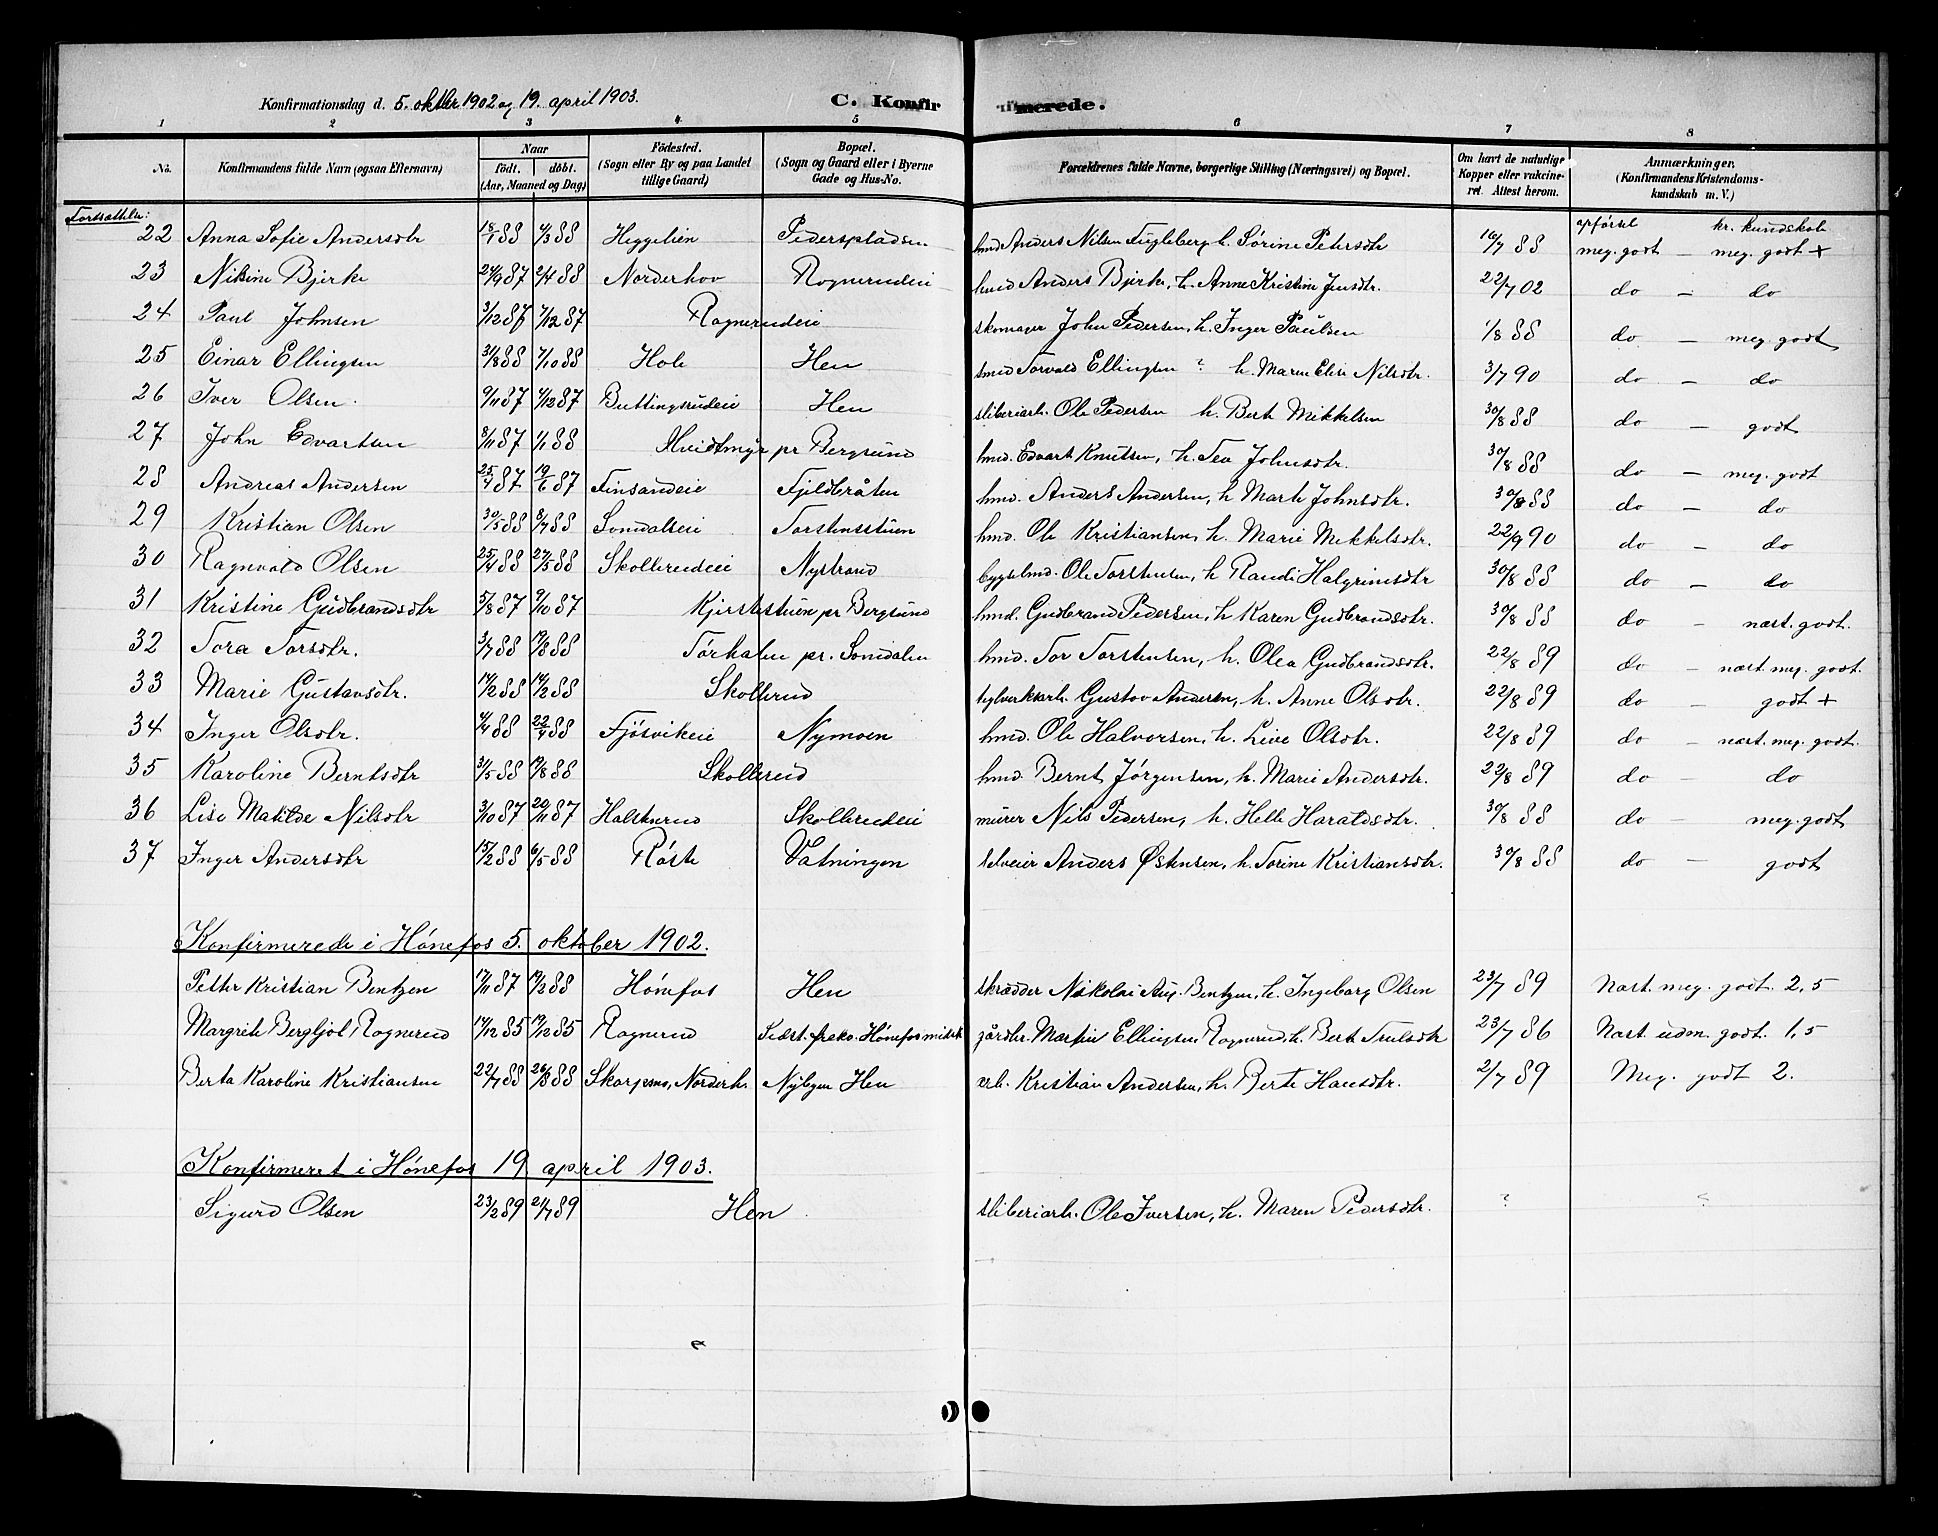 Konfirmationsdag d. 5. oktbr 1902 og 19. april 1903.
C. Konfirmerede.
1 2 3 4 5 6 7 8
No. Konfirmandens fulde Navn (ogsaa Efternavn) Naar født. døbt. (Aar, Maaned og Dag) Födested. (Sogn eller By og paa Landet tillige Gaard) Bopæl. (Sogn og Gaard eller i Byerne Gade og Hus-No. Forældrenes fulde Navne, borgerlige Stilling (Næringsvei) og Bopæl. Om havt de naturlige Kopper eller vakcineret. Attest herom. Anmærkninger, (Konfirmandens Kristendomskundskab m. V.)
Fortsættelse: opførsel kr. kundskab
22 Anna Sofie Andersdtr 18/1 88 4/3 88 Heggelien Pederspladsen hmd Anders Nilsen Fugleberg h. Sørine Petersdtr 16/7 88 meg. godt – meg. godt +
23 Nikine Bjerke 24/9 87 2/4 88 Norderhov Rognerudeie hmd Anders Bjerke, h. Anne Kristine Jensdtr. 22/7 02 do – do
24 Paul Johnsen 3/12 87 7/12 87 Rognerudeie skomager John Pedersen, h. Inger Paulsen 1/8 88 do – meg. godt
25 Einar Ellingsen 31/8 88 7/10 88 Hole Hen smed Torvald Ellingsen ? h. Maren Elise Nilsdtr. 3/7 90 do – do
26 Iver Olsen. 9/11 87 4/12 87 Buttingsrudeie Hen sliberiarb. Ole Pedersen h. Berte Mikkelsen 30/8 88 do – godt
27 John Edvartsen 8/11 87 1/1 88 Hvidtmyr pr Bergsund hmd. Edvart Knutsen, h. Tea Johnsdtr. 30/8 88 do – meg. godt
28 Andreas Andersen 25/4 87 19/6 87 Finsandeie Fjeldbråten hmd. Anders Andersen, h Marte Johnsdtr. 30/8 88 do – do
29 Kristian Olsen 30/5 88 8/7 88 Somdalseie Torstensstuen hmd. Ole Kristiansen, h. Marie Mikkelsdtr. 22/9 90 do – do
30 Ragnvald Olsen 25/4 88 27/5 88 Skollerudeie Nystrand bygselmd. Ole Torstensen, h Randi Halgrimsdtr 30/8 88 do – do
31 Kristine Gudbrandsdtr 5/8 87 9/10 87 Kjirstistuen pr Bergsund hmd. Gudbrand Pedersen, h Karen Gudbrandsdtr. 30/8 88 do – næst. godt.
32 Tora Torsdtr. 3/7 88 19/8 88 Tørhalen pr. Somdalen hmd. Tor Torstensen, h. Olea Gudbrandsdtr. 22/8 89 do – næst. meg. godt.
33 Marie Gustavsdtr. 14/2 88 14/2 88 Skollerud Gustav Andersen, h. Anne Olsdtr. 22/8 89 do – godt +
34 Inger Olsdtr. 4/4 88 22/4 88 Fjösvikeie Nymoen hmd. Ole Halvorsen, h. Live Olsdtr. 22/8 89 do – næst. meg. godt.
35 Karoline Berntsdtr 31/5 88 19/8 88 Skollerud hmd Bernt Jørgensen, h. Marie Andersdtr. 22/8 89 do – do
36 Lise Matilde Nilsdtr 3/10 87 20/11 87 Halsterud Skollerudeie murer Nils Pedersen, h. Helle Haraldsdtr. 30/8 88 do – meg. godt
37 Inger Andersdtr 15/2 88 6/5 88 Röste Vatningen selveier Anders Østensen, h. Torine Kristiansdtr. 30/8 88 do – godt
Konfirmerede i Hønefos 5. oktober 1902.
Petter Kristian Bentzen 17/11 87 19/2 88 Hönefos Hen skrædder Nikolai Aug. Bentzen, h. Ingeborg Olsen 23/7 89 Næst. meg. godt. 2,5
Margrete Bergljot Rognerud 17/12 85 19/12 85 Rognerud Hønefos gårdbr. Martin Ellingsen Rognerud, h. Berte Trulsdtr 23/7 86 Næst. udm. godt. 1,5
Berta Karoline Kristiansen 22/7 88 26/8 88 Skarpsno, Norderh. Nybyen Hen arb. Kristian Andersen, h. Berte Hansdtr. 2/7 89 Meg. godt 2.
Konfirmeret i Hønefos 19 april 1903.
Sigurd Olsen 23/2 89 21/7 89 Hen sliberiarb. Ole Iversen, h. Maren Pedersdtr. ? ?